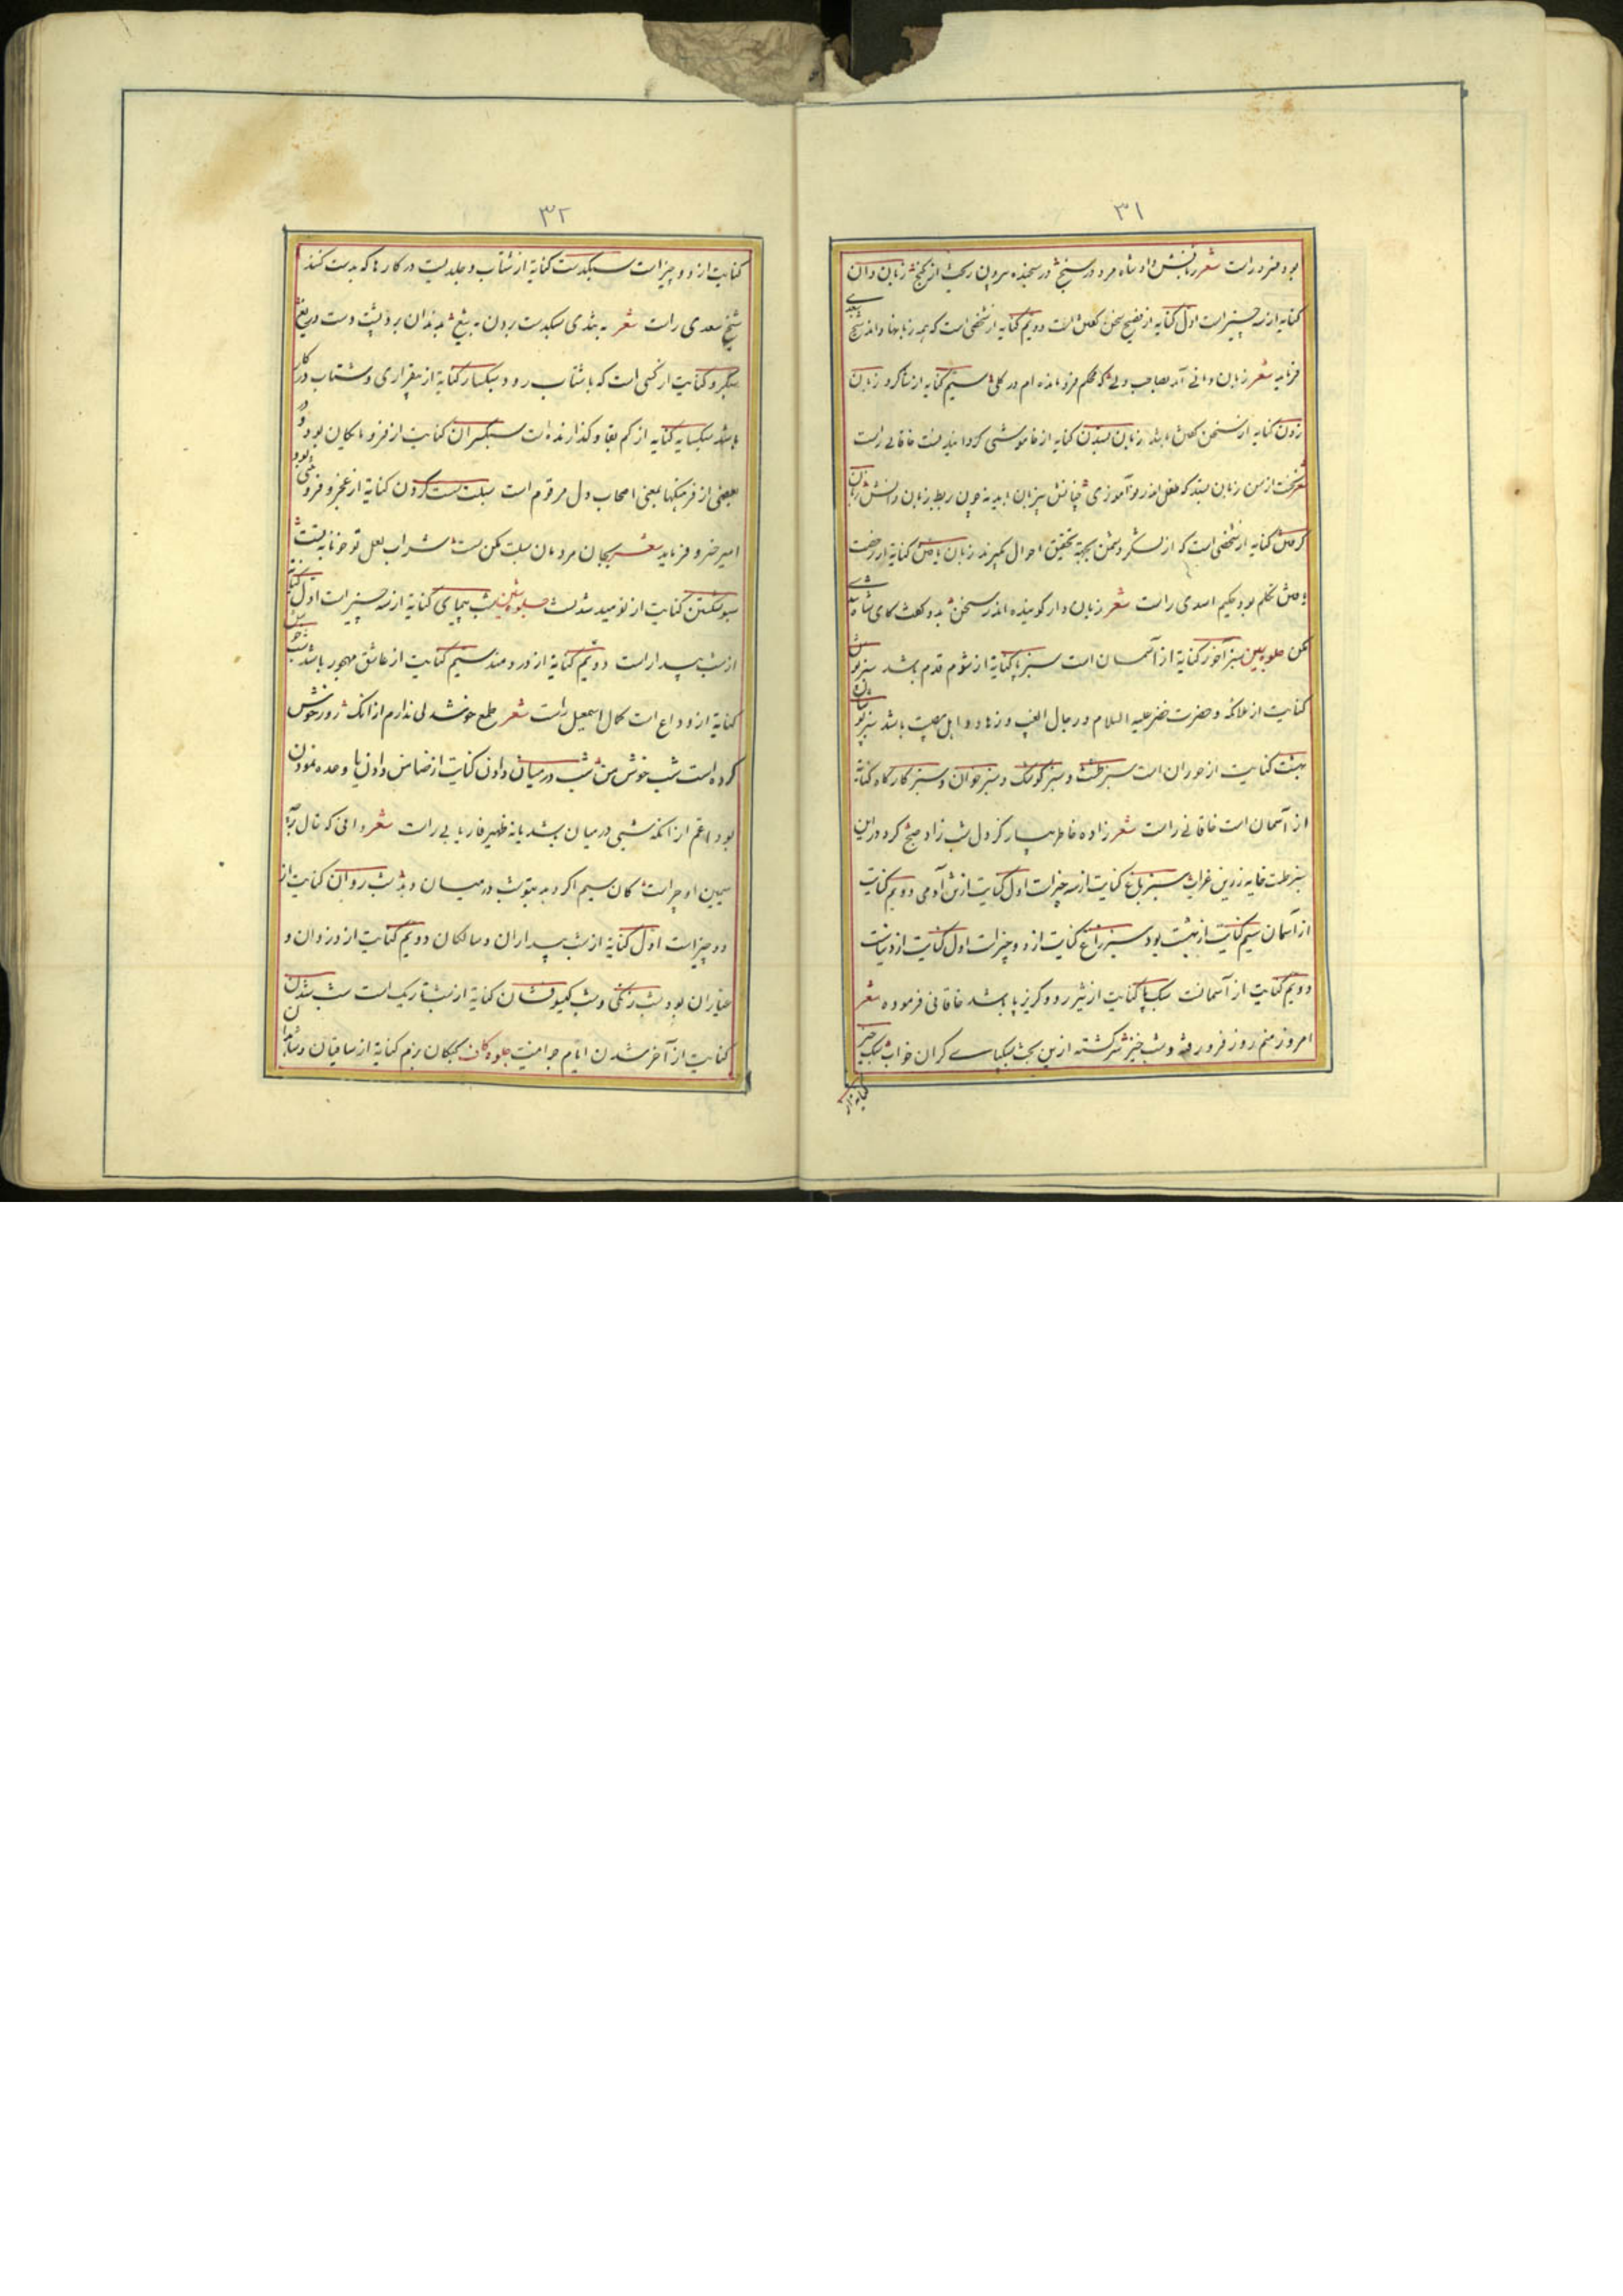 ٣١
بود هنرور راست شعر زبانش داد شاه مرد در سنج در سنجیده بیرون ریخت از گنج زبان دان
کنایه از سه چیز است اول کنایه از فصیح سخن گفتن است دویم کنایه از شخصی است که همه زبانها داند شیخ سعدی
فرماید شعر زبان دانی آمد بصاحب دلی که محکم فرو مانده ام در گلی سیم کنایه از شاگرد زبان
زدن کنایه از سخن گفتن باشد زبان بستن کنایه از خاموشی خاقانی راست
شعر از من زبان که طفل اندر نوآموزی چنانش زبان
کنایه از شخصی است که از لشکر دشمن بجهة تحقیق احوال بگیرند زبان یافتن کنایه از رخصت
یافتن تکلم بود حکیم اسدی راست شعر زبان دار گوینده اندر سخن بدو گفت کای شاه
جلوه سین سبز آخور کنایة از آسمان است سبز پا کنایة از شوم قدم باشد سبز پوش
کنایت از ملائکه و حضرت خضر علیه السلام و رجال الغیب و زهاد و اهل مصیبت باشد سبز پوشان
بهشت کنایت از حوران است سبز طشت و سبز کوشک و سبز خوان و سبز کارگاه کنایة
از آسمان است خاقانی راست شعر زاده خاطر بیار کز دل شب زاد صبح کرد در این
سبز طشت خایه زرین غراب سبز باغ کنایت از سه چیز است اول کنایت از تن آدمی دویم کنایت
از آسمان سیم کنایت از بهشت بود سبز راغ کنایت از دو چیز است اول کنایت از دنیاست
دویم کنایت از آسمانست سبک پا کنایت از تیز رو و گریز پا باشد خاقانی فرموده شعر
امروز منم روز فرو رفته و شب خیز سرگشته ازین بخت سبکپای گران خواب سبک خیز
٣٢
کنایت از دو چیز است سبکدست کنایة از شتاب و جلدیست در کارها که بدست کنند
شیخ سعدی راست شعر به تندی سبکدست بردن به تیغ بدندان برد پشت دست دریغ
سبکرو کنایت از کسی است که با شتاب رود سبکسار کنایة از بیقراری و شتاب در کار
باشد سبکسایه کنایه از کم بقا و گذارنده است سبکسران کنایت از فرومایگان بود و در
بعضی از فرهنگها بمعنی اصحاب دل مرقوم است سبلت سست کردن کنایة از عجز و فروتنی بود
امیر خسرو فرماید شعر بجان مردمان سبلت مکن سست شراب لعل تو خونابه تست
سبو شکستن کنایت از نومید شدنست جلوه شین شب پیمای کنایة از سه چیز است اول کنایه
از شب بیدار است دویم کنایة از دردمند سیم کنایت از عاشق مهجور باشد شب خوش
کنایة از وداع است کمال اسمعیل راست شعر طمع خوشدلی ندارم از انک روز خوش
کرده است شب خوش من شب در میان دادن کنایت از ضامن دادن یا وعده نمودن
بود اعم از انکه شبی در میان باشد یا نه ظهیر فاریابی راست شعر
سیمین او چراست کان سیم اگر دهد بتو شب در میان دهد شب روان کنایت از
دو چیز است اول کنایة از شب بیداران و سالکان دویم کنایت از دزدان و
عیاران بود شب زنگی و شب گیسو فشان کنایة از شب تاریک است شب شدن
کنایت از آخر شدن ایام جوانیست جلوه کاف کبکان بزم کنایة از ساقیان و شاهدان